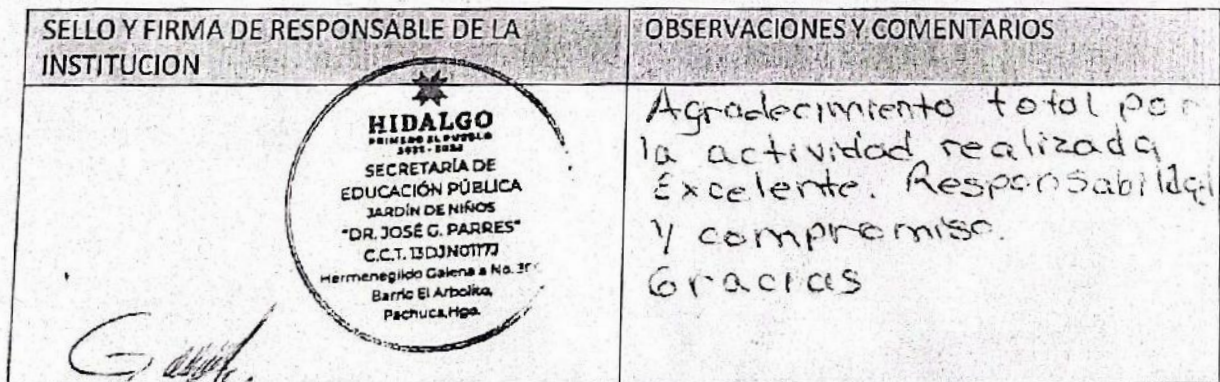 SELLO Y FIRMA DE RESPONSABLE DE LA
INSTITUCION
OBSERVACIONES Y COMENTARIOS
HIDALGO
PRIMERO EL PUEBLO
SECRETARÍA DE
EDUCACIÓN PÚBLICA
JARDÍN DE NIÑOS
"DR. JOSÉ G. PARRES"
C.C.T. 13DJN0117J
Hermenegildo Galeana No.
Barrio El Arbolito,
Pachuca, Hgo.
Agradecimiento total por
la actividad realizada
Excelente. Responsabilidad
y compromiso.
Gracias